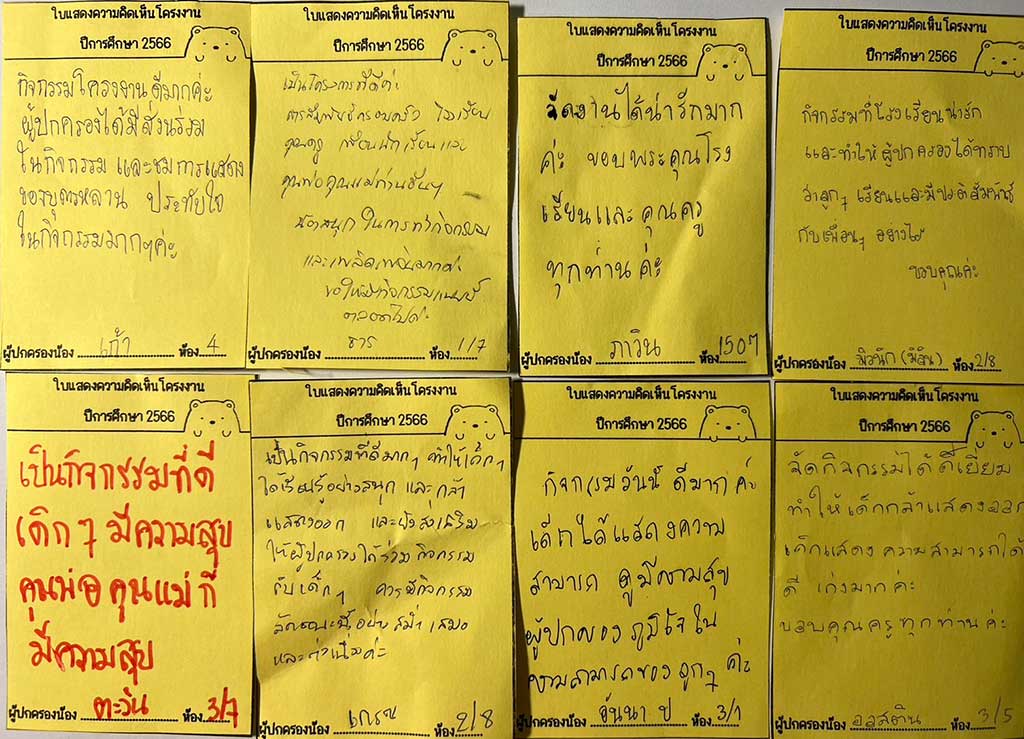 ใบแสดงความคิดเห็นโครงงาน
ปีการศึกษา 2566
กิจกรรมโครงงานดีมากค่ะ
ผู้ปกครองได้มีส่วนร่วม
ในกิจกรรม และชมการแสดง
ของบุตรหลาน ประทับใจ
ในกิจกรรมมากๆค่ะ
ผู้ปกครองน้อง เก้า ห้อง 4
ใบแสดงความคิดเห็นโครงงาน
ปีการศึกษา 2566
เป็นโครงการที่ดีค่ะ
ครอบครัว โรงเรียน
คุณครู เพื่อนนักเรียนและ
คุณพ่อคุณแม่ท่านอื่นๆ
สนุกในการทำกิจกรรม
และเพลิดเพลินมากค่ะ
ขอให้มีกิจกรรมแบบนี้
ตลอดไปค่ะ
ผู้ปกครองน้อง ธาร ห้อง 1/7
ใบแสดงความคิดเห็นโครงงาน
ปีการศึกษา 2566
จัดงานได้น่ารักมาก
ค่ะ ขอบพระคุณโรง
เรียนและคุณครู
ทุกท่านค่ะ
ผู้ปกครองน้อง ภาวิน ห้อง
ใบแสดงความคิดเห็นโครงงาน
ปีการศึกษา 2566
กิจกรรมที่โรงเรียนน่ารัก
และทำให้ผู้ปกครองได้ทราบ
ว่าลูกๆ เรียนและมีปฏิสัมพันธ์
กับเพื่อนๆ อย่างไร
ขอบคุณค่ะ
ผู้ปกครองน้อง ห้อง 2/8
ใบแสดงความคิดเห็นโครงงาน
ปีการศึกษา 2566
เป็นกิจกรรมที่ดี
เด็กๆ มีความสุข
คุณพ่อคุณแม่ก็
มีความสุข
ผู้ปกครองน้อง ตะวัน ห้อง 3/7
ใบแสดงความคิดเห็นโครงงาน
ปีการศึกษา 2566
เป็นกิจกรรมที่ดีมากๆ ทำให้เด็กๆ
ได้เรียนรู้อย่างสนุก และกล้า
แสดงออก และยังส่งเสริม
ให้ผู้ปกครองได้ร่วมกิจกรรม
กับเด็กๆ ควรมีกิจกรรม
ลักษณะนี้อย่างสม่ำเสมอ
และต่อเนื่องค่ะ
ผู้ปกครองน้อง ห้อง 2/8
ใบแสดงความคิดเห็นโครงงาน
ปีการศึกษา 2566
กิจกรรมวันนี้ ดีมากค่ะ
เด็กได้แสดงความ
สามารถ ดูมีความสุข
ผู้ปกครอง ภูมิใจใน
ความสามารถของลูกๆ ค่ะ
ผู้ปกครองน้อง อันนา ป ห้อง 3/1
ใบแสดงความคิดเห็นโครงงาน
ปีการศึกษา 2566
จัดกิจกรรมได้ดีเยี่ยม
ทำให้เด็กกล้าแสดงออก
เด็กแสดงความสามารถได้
ดี เก่งมากค่ะ
ขอบคุณครูทุกท่านค่ะ
ผู้ปกครองน้อง ออสติน ห้อง 3/5